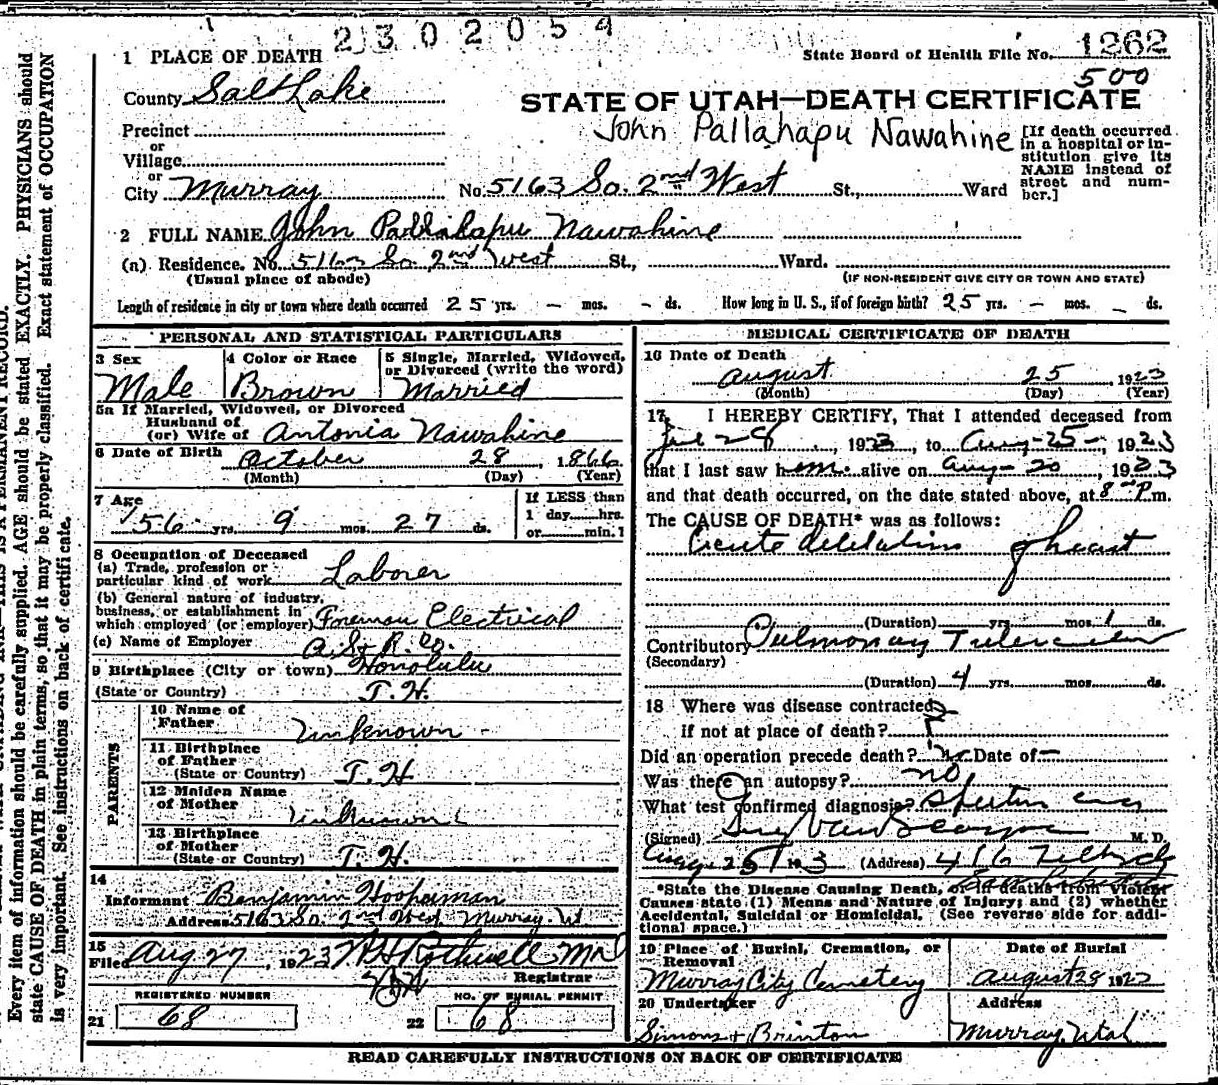 2302054
1 PLACE OF DEATH
State Board of Health File No. 1262
500
County Salt Lake
STATE OF UTAH—DEATH CERTIFICATE
John Pallahapu Nawahine
Precinct
or
Village
or
City Murray No. 5163 So. 2nd West St., Ward
[If death occurred in a hospital or institution give its NAME instead of street and number.]
2 FULL NAME John Pallahapu Nawahine
(a) Residence. No. 5163 So 2nd West St., Ward.
(Usual place of abode) (IF NON-RESIDENT GIVE CITY OR TOWN AND STATE)
Length of residence in city or town where death occurred 25 yrs. — mos. - ds. How long in U. S., if of foreign birth? 25 yrs. — mos. - ds.
PERSONAL AND STATISTICAL PARTICULARS
3 Sex
Male
4 Color or Race
Brown
5 Single, Married, Widowed,
or Divorced (write the word)
Married
5a If Married, Widowed, or Divorced
Husband of
(or) Wife of Antonia Nawahine
6 Date of Birth October 28, 1866
(Month) (Day) (Year)
7 Age
56 yrs. 9 mos. 27 ds.
If LESS than
1 day hrs.
or min.?
8 Occupation of Deceased
(a) Trade, profession or
particular kind of work Laborer
(b) General nature of industry,
business, or establishment in
which employed (or employer) Foreman Electrical
(c) Name of Employer A.S.& R. Co.
9 Birthplace (City or town) Honolulu
(State or Country) T. H.
PARENTS
10 Name of
Father Unknown
11 Birthplace
of Father
(State or Country) T. H
12 Maiden Name
of Mother Unknown
13 Birthplace
of Mother
(State or Country) T. H.
14
Informant Benjamin
Address 5163 So. 2nd West Murray Ut
15
Filed Aug 27, 1923 Rothwell MD
Registrar
REGISTERED NUMBER
21 68
NO. OF BURIAL PERMIT
22 68
MEDICAL CERTIFICATE OF DEATH
16 Date of Death
August 25, 1923
(Month) (Day) (Year)
17 I HEREBY CERTIFY, That I attended deceased from
Jul 28, 1923, to Aug-25-, 1923
that I last saw h em alive on Aug-20, 1923
and that death occurred, on the date stated above, at 8 P.m.
The CAUSE OF DEATH* was as follows:
Acute dilitation of heart
(Duration) yrs. mos. 1 ds.
Contributory Pulmonary Tuberculosis
(Secondary)
(Duration) 4 yrs. mos. ds.
18 Where was disease contracted
if not at place of death? ?
Did an operation precede death? no Date of —
Was there an autopsy? no
What test confirmed diagnosis?
(Signed) M. D.
(Address) 416
*State the Disease Causing Death, or in deaths from Violent
Causes state (1) Means and Nature of Injury; and (2) whether
Accidental, Suicidal or Homicidal. (See reverse side for addi-
tional space.)
19 Place of Burial, Cremation, or
Removal
Murray City Cemetery
Date of Burial
August 28 1923
20 Undertaker
Simons & Brinton
Address
Murray, Utah
READ CAREFULLY INSTRUCTIONS ON BACK OF CERTIFICATE
Every item of information should be carefully supplied. AGE should be stated EXACTLY. PHYSICIANS should
state CAUSE OF DEATH in plain terms, so that it may be properly classified. Exact statement of OCCUPATION
is very important. See instructions on back of certificate.